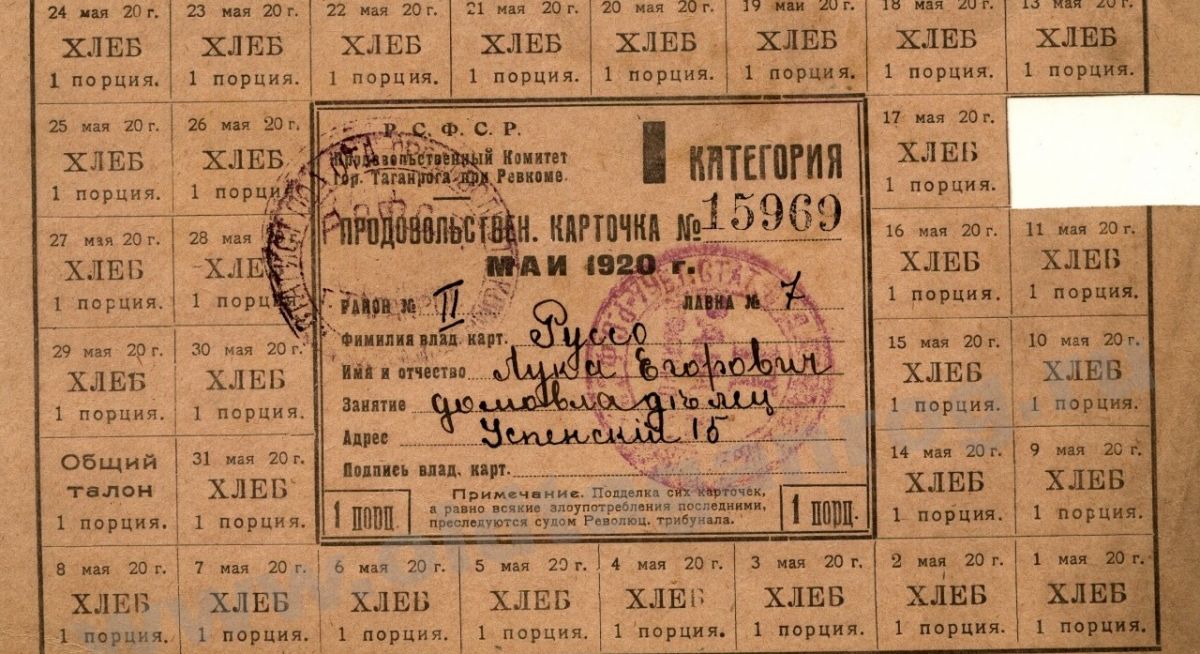 24 мая 20 г. 23 мая 20 г. 22 мая 20 г. 21 мая 20 г. 20 мая 20 г. 19 маи 20 г. 18 мая 20 г. 13 мая 20 г.
ХЛЕБ ХЛЕБ ХЛЕБ ХЛЕБ ХЛЕБ ХЛЕБ ХЛЕБ ХЛЕБ
1 порция. 1 порция. 1 порция. 1 порция. 1 порция. 1 порция. 1 порция. 1 порция.
25 мая 20 г.
ХЛЕБ
1 порция.
26 мая 20 г.
ХЛЕБ
1 порци
27 мая 20 г.
ХЛЕБ
1 порция.
28 мая
ХЛЕ
1 порц
29 мая 20 г.
ХЛЕБ
1 порция.
30 мая 20 г.
ХЛЕБ
1 порция.
Общий
талон
1 порция.
31 мая 20 г.
ХЛЕБ
1 порция.
Р. С. Ф. С. Р.
Продовольственный Комитет
гор. Таганрога при Ревкоме.
I КАТЕГОРИЯ
ПРОДОВОЛЬСТВЕН. КАРТОЧКА № 15969
МАИ 1920 г.
РАЙОН № II ЛАВКА № 7
Фамилия влад. карт. Руссо
Имя и отчество Лука Егорович
Занятие домовладѣлец
Адрес Успенскій 15
Подпись влад. карт.
Примечание. Подделка сих карточек,
а равно всякие злоупотребления последними,
преследуются судом Революц. трибунала.
1 порц. 1 порц.
17 мая 20 г.
ХЛЕБ
1 порция.
16 мая 20 г.
ХЛЕБ
1 порция.
11 мая 20 г.
ХЛЕБ
1 порция.
15 мая 20 г.
ХЛЕБ
1 порция.
10 мая 20 г.
ХЛЕБ
1 порция.
14 мая 20 г.
ХЛЕБ
1 порция.
9 мая 20 г.
ХЛЕБ
1 порция.
8 мая 20 г. 7 мая 20 г. 6 мая 20 г. 5 мая 20 г. 4 мая 20 г. 3 мая 20 г. 2 мая 20 г. 1 мая 20 г.
ХЛЕБ ХЛЕБ ХЛЕБ ХЛЕБ ХЛЕБ ХЛЕБ ХЛЕБ ХЛЕБ
1 порция. 1 порция. 1 порция. 1 порция. 1 порция. 1 порция. 1 порция. 1 порция.